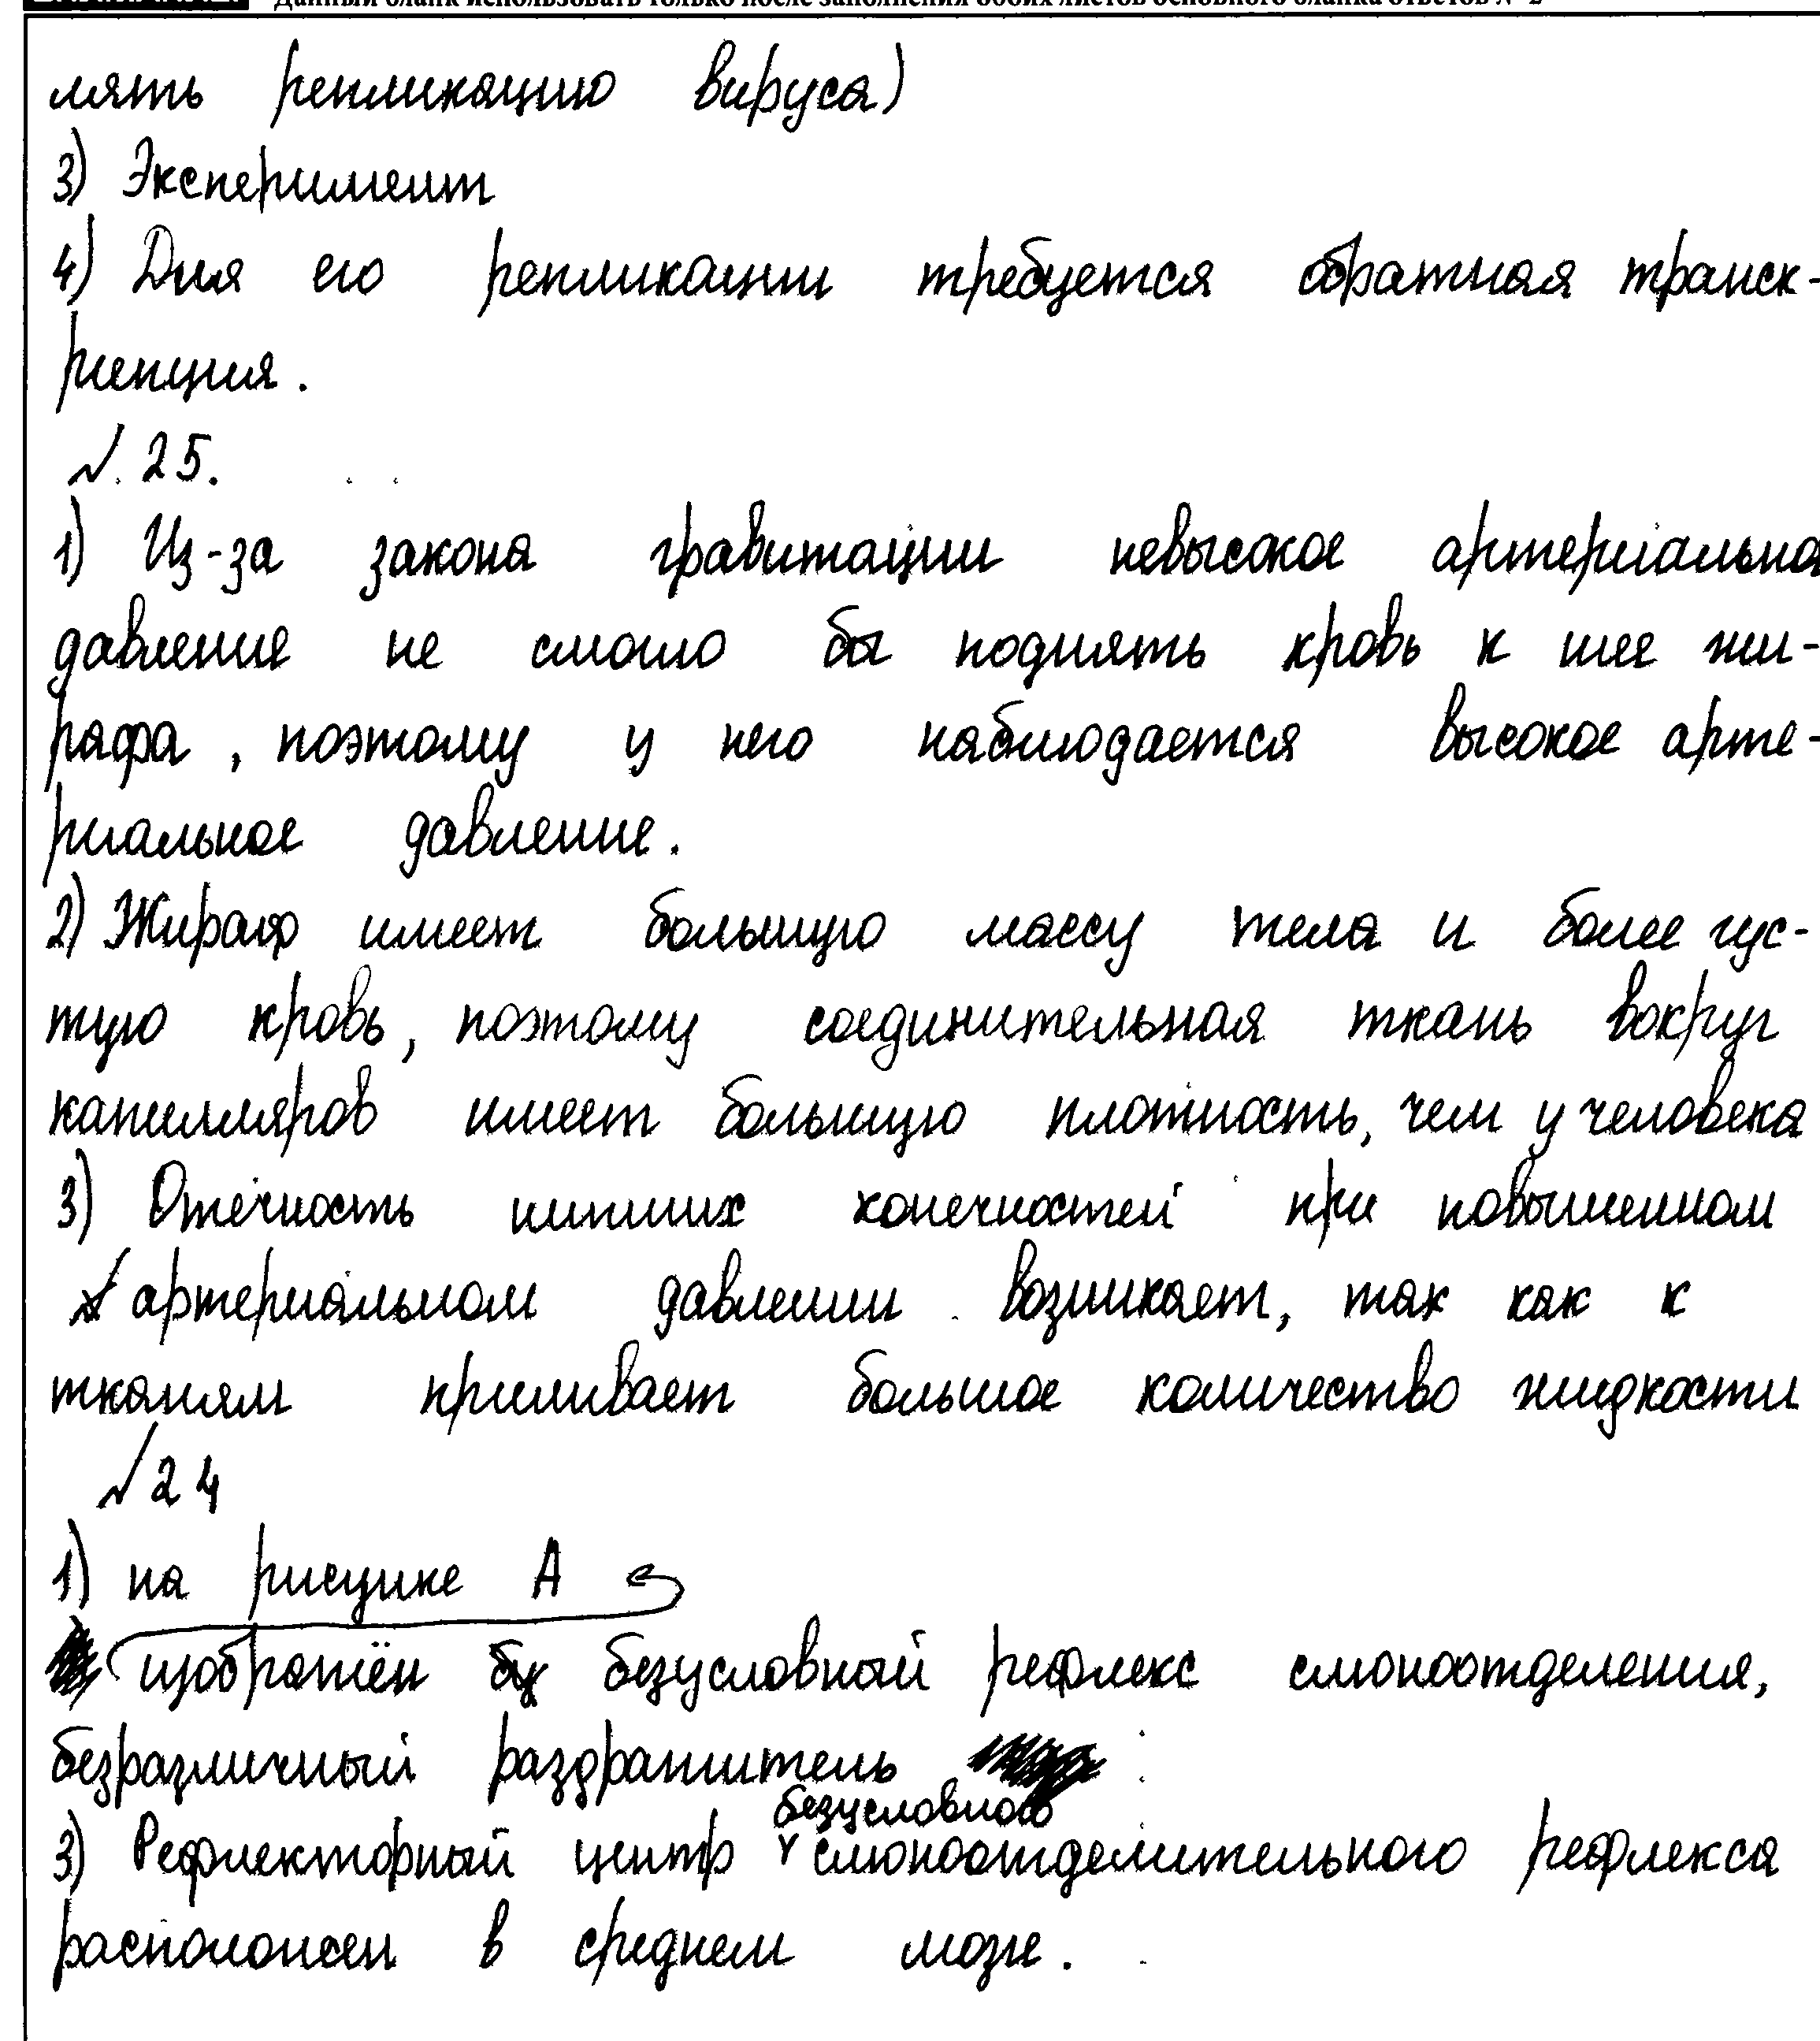 Данный бланк использовать только после заполнения обоих листов основного бланка ответов № 2
лять репликацию вируса)
3) Эксперимент
4) Для его репликации требуется обратная транск-
рипция.
№ 25.
1) Из-за закона гравитации невысокое артериально
давление не смогло бы поднять кровь к шее жи-
рафа, поэтому у него наблюдается высокое арте-
риальное давление.
2) Жираф имеет большую массу тела и более гус-
тую кровь, поэтому соединительная ткань вокруг
капилляров имеет большую плотность, чем у человека
3) Отёчность нижних конечностей при повышенном
артериальном давлении возникает, так как к
тканям приливает большое количество жидкости
№ 24
1) на рисунке А
изображён безусловный рефлекс слюноотделения,
безразличный раздражитель
безусловного
3) Рефлекторный центр слюноотделительного рефлекса
расположен в среднем мозге.